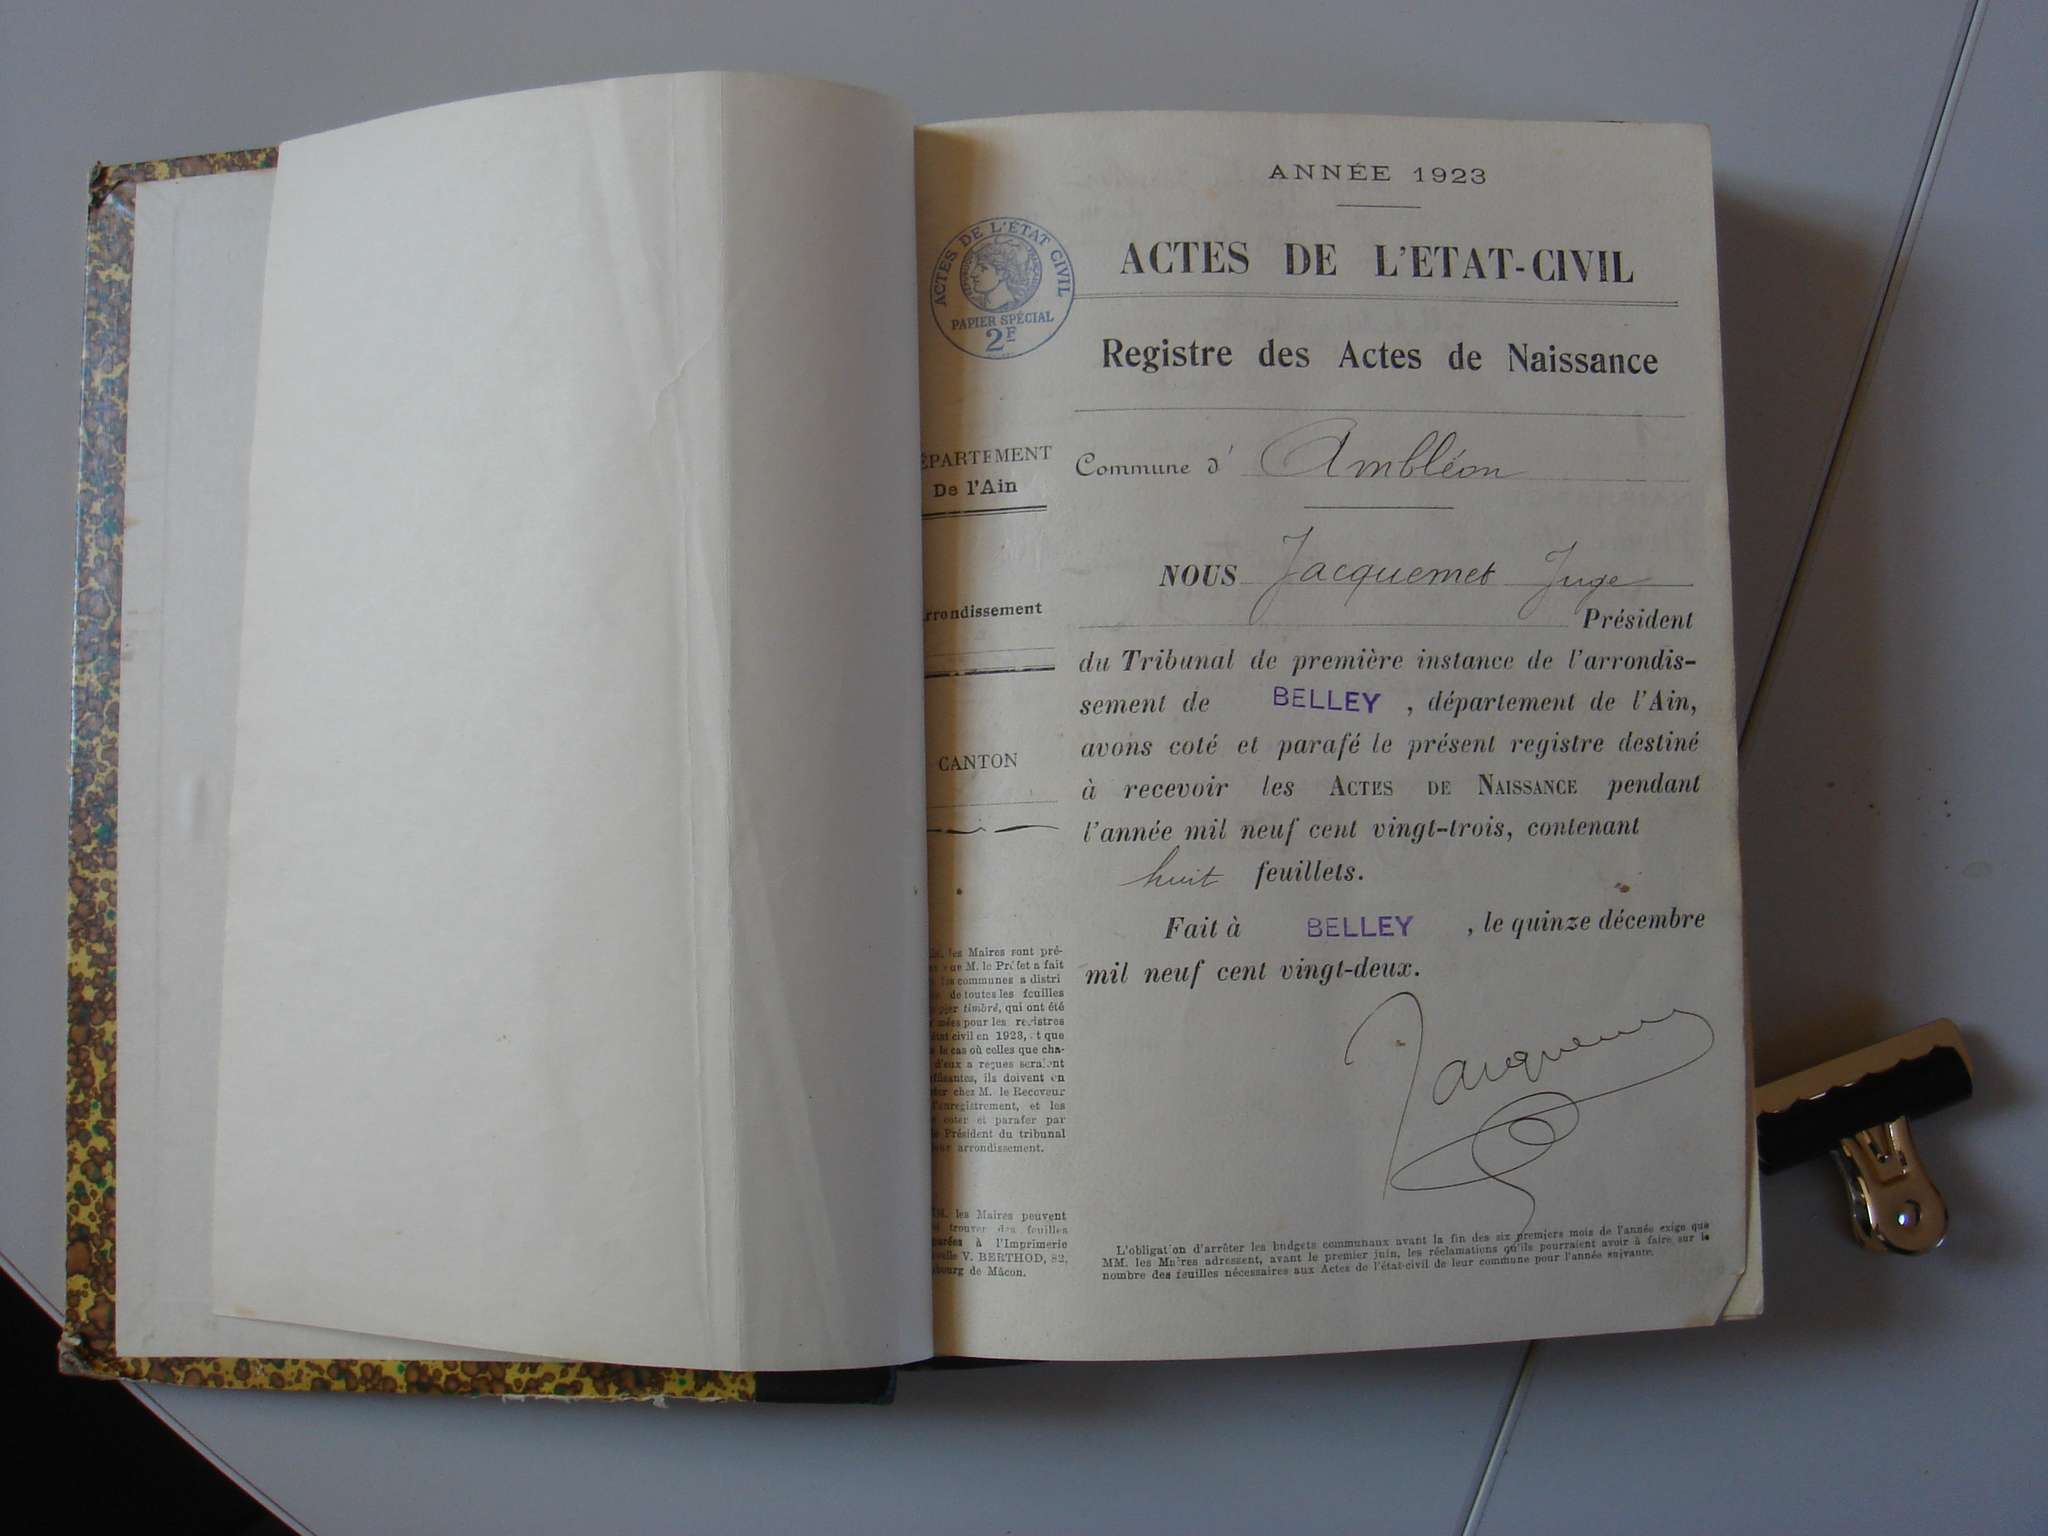 ANNÉE 1923
ACTES DE L'ÉTAT CIVIL
RÉPUBLIQUE FRANÇAISE
PAPIER SPÉCIAL
2F
ACTES DE L'ETAT-CIVIL
Registre des Actes de Naissance
ÉPARTEMENT
De l'Ain
rrondissement
CANTON
Commune d' Ambléon
NOUS Jacquemet Juge
Président
du Tribunal de première instance de l'arrondis-
sement de BELLEY, département de l'Ain,
avons coté et parafé le présent registre destiné
à recevoir les ACTES DE NAISSANCE pendant
l'année mil neuf cent vingt-trois, contenant
huit feuillets.
Fait à BELLEY, le quinze décembre
mil neuf cent vingt-deux.
Jacquemet
les Maires sont pré-
que M. le Préfet a fait
les communes a distri
de toutes les feuilles
timbré, qui ont été
mées pour les registres
état civil en 1923, et que
le cas où celles que cha-
d'eux a reçues seraient
ffisantes, ils doivent en
chez M. le Receveur
l'enregistrement, et les
coter et parafer par
le Président du tribunal
arrondissement.
MM. les Maires peuvent
trouver des feuilles
à l'Imprimerie
V. BERTHOD, 82,
bourg de Mâcon.
L'obligation d'arrêter les budgets communaux avant la fin des six premiers mois de l'année exige que
MM. les Maires adressent, avant le premier juin, les réclamations qu'ils pourraient avoir à faire sur le
nombre des feuilles nécessaires aux Actes de l'état-civil de leur commune pour l'année suivante.